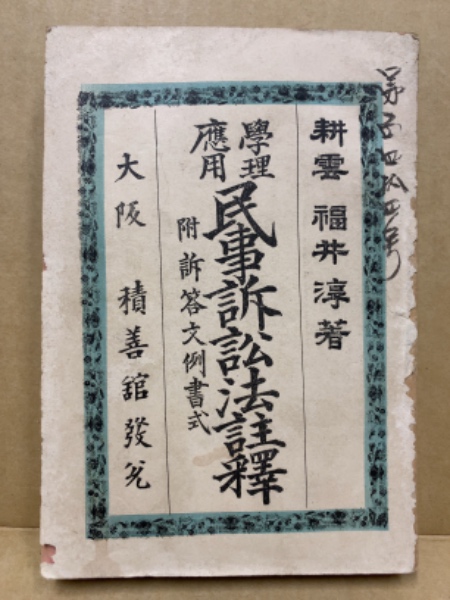 第五四拾四号
耕雲 福井淳著
學理
應用
民事訴訟法註釋
附訴答文例書式
大阪 積善舘發兌